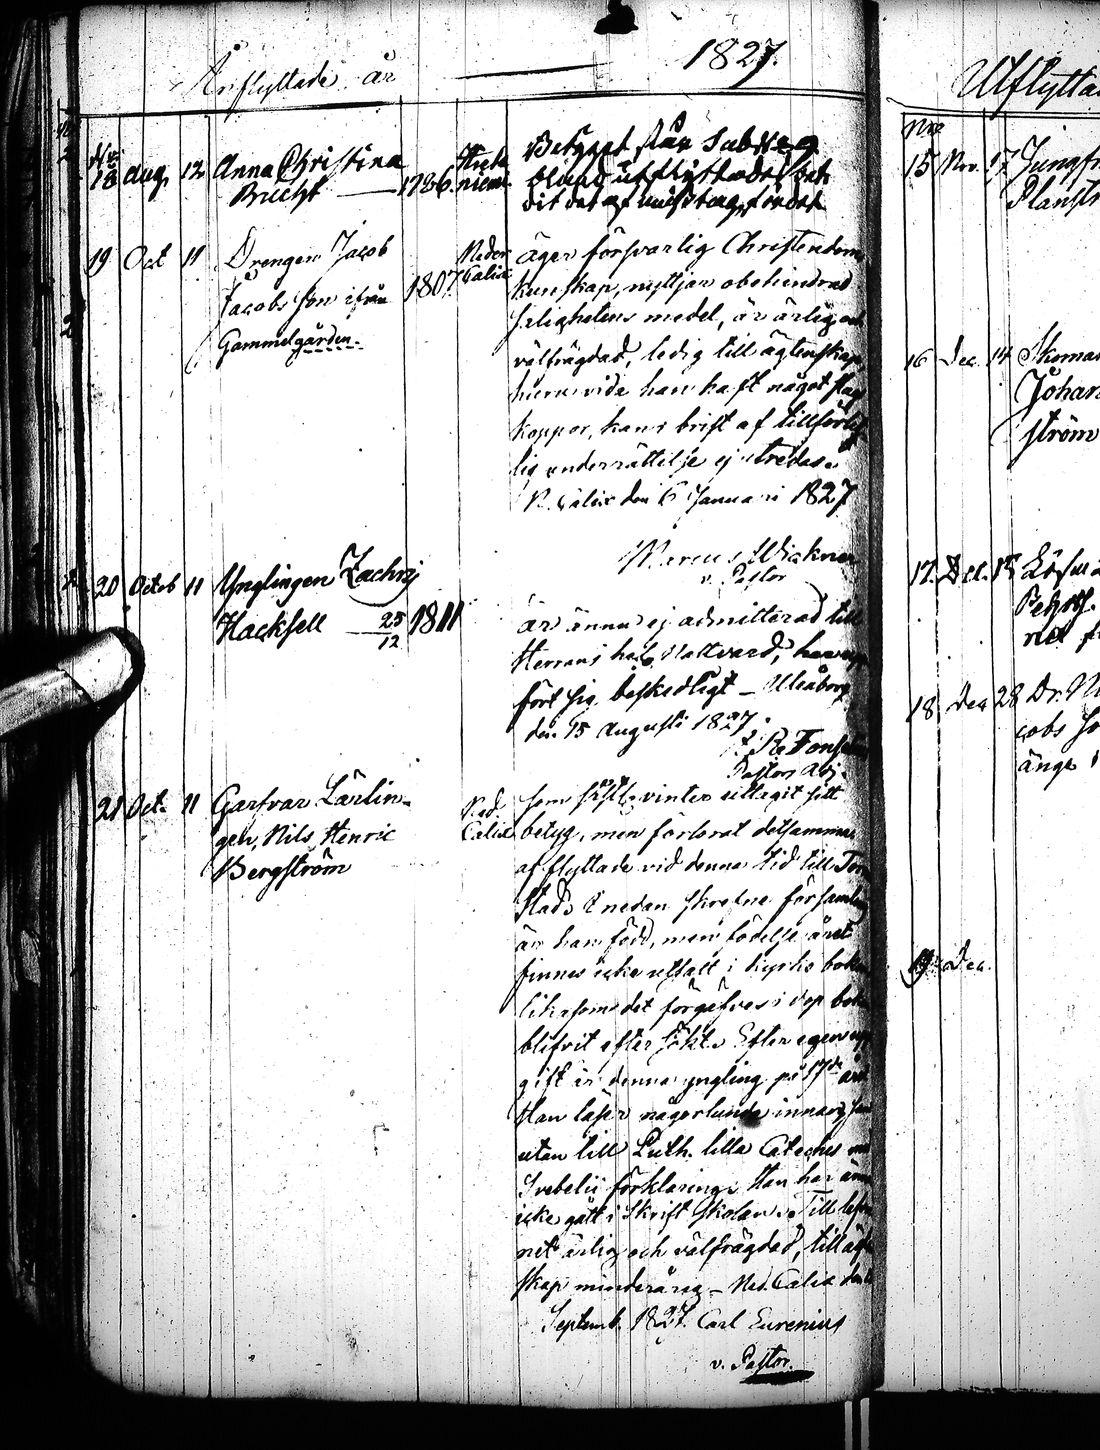 Inflyttade år 1827.
Nr
18 Aug. 12 Anna Christina
1786.
Hieta
niemi
Betyget står sub Nr 9
bland utflyttade,
dit det af misstag fördt
19 Oct 11 Drengen Jacob
Jacobs son ifrån
Gammelgården.
1807.
Neder
Calix
äger försvarlig Christendoms
kunskap, nyttjar obehindrad
salighetens medel, är ärlig och
välfrägdad, ledig till ägtenskap
huruvida han haft något slag
koppor, kan i brist af tillförlit
lig underrättelse ej utredas.
N. Calix den 6 Januari 1827
Wickner
v. Pastor
20 Octob 11 Ynglingen Zachrj
Hacksell 25/12 1811
är ännu ej admitterad till
Herrans hel. Nattvard,
fört sig beskedligt – Uleåborg
den 15 Augusti 1827.
Pastors Adj.
21 Oct. 11 Garfvar Lärlin-
gen, Nils Henric
Bergström
Ned.
Calix
som sistl. vinter uttagit sitt
betyg, men förlorat detsamma
afflyttade vid denna tid till
Stad. I nedan skrefne församling
är han född, men födelse året
finnes icke utsatt i kyrko boken
likasom det förgäfves i dop boken
blifvit efter sökt. Efter egen upp
gift är denna yngling på 17de året
Han läser någorlunda innan,
utan till Luth. lilla Cateches med
Svebelii förklaring. Han har ännu
icke gått i Skrift Skolan. Till lefver
net ärlig och välfrägdad, till ägten
skap minderårig – Ned. Calix den
Septemb. 1827. Carl Eurenius
v. Pastor.
Utflytta
Nro
15 Nov. 17 Jungfr
16 Dec. 14 Skomak
Johan
ström
17. Dec. 18
18 Dec 28 Dr. N
cobs So
änge
19 Dec.